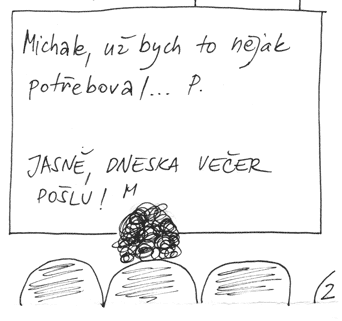 Michale, už bych to nějak
potřeboval... P.
JASNĚ, DNESKA VEČER
POŠLU! M
(2